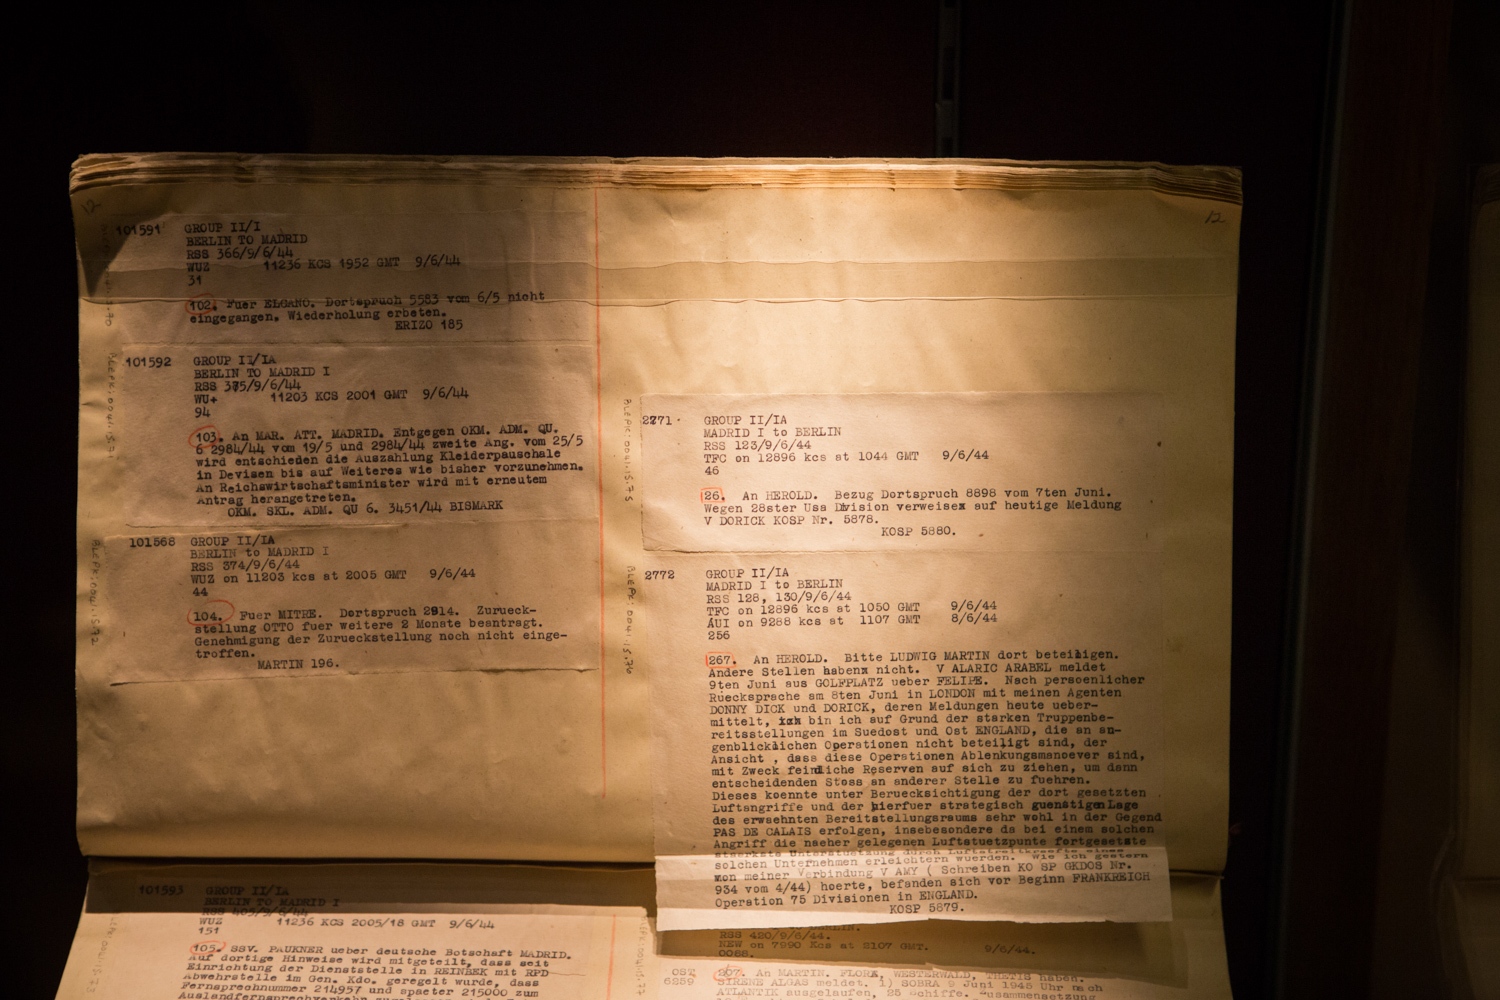 12
101591
GROUP II/I
BERLIN TO MADRID
RSS 366/9/6/44
WUZ 11236 KCS 1952 GMT 9/6/44
31
102. Fuer ELCANO. Dortspruch 5583 vom 6/5 nicht
eingegangen. Wiederholung erbeten.
ERIZO 185
101592
GROUP II/IA
BERLIN TO MADRID I
RSS 375/9/6/44
WU+ 11203 KCS 2001 GMT 9/6/44
94
103. An MAR. ATT. MADRID. Entgegen OKM. ADM. QU.
6 2984/44 vom 19/5 und 2984/44 zweite Ang. vom 25/5
wird entschieden die Auszahlung Kleiderpauschale
in Devisen bis auf Weiteres wie bisher vorzunehmen.
An Reichswirtschaftsminister wird mit erneutem
Antrag herangetreten.
OKM. SKL. ADM. QU 6. 3451/44 BISMARK
101568
GROUP II/IA
BERLIN to MADRID I
RSS 374/9/6/44
WUZ on 11203 kcs at 2005 GMT 9/6/44
44
104. Fuer MITRE. Dortspruch 2914. Zurueck-
stellung OTTO fuer weitere 2 Monate beantragt.
Genehmigung der Zurueckstellung noch nicht einge-
troffen.
MARTIN 196.
101593
GROUP II/IA
BERLIN TO MADRID I
RSS 405/9/6/44
WUZ 11236 KCS 2005/18 GMT 9/6/44
151
105. SSV. PAUKNER ueber deutsche Botschaft MADRID.
Auf dortige Hinweise wird mitgeteilt, dass seit
Einrichtung der Dienststelle in REINBEK mit RPD
Abwehrstelle im Gen. Kdo. geregelt wurde, dass
Fernsprechnummer 214957 und spaeter 215000 zum
12
2771
GROUP II/IA
MADRID I to BERLIN
RSS 123/9/6/44
TFC on 12896 kcs at 1044 GMT 9/6/44
46
26. An HEROLD. Bezug Dortspruch 8898 vom 7ten Juni.
Wegen 28ster Usa Division verweisex auf heutige Meldung
V DORICK KOSP Nr. 5878.
KOSP 5880.
2772
GROUP II/IA
MADRID I to BERLIN
RSS 128, 130/9/6/44
TFC on 12896 kcs at 1050 GMT 9/6/44
AUI on 9288 kcs at 1107 GMT 8/6/44
256
267. An HEROLD. Bitte LUDWIG MARTIN dort beteiligen.
Andere Stellen habenx nicht. V ALARIC ARABEL meldet
9ten Juni aus GOLFPLATZ ueber FELIPE. Nach persoenlicher
Ruecksprache am 8ten Juni in LONDON mit meinen Agenten
DONNY DICK und DORICK, deren Meldungen heute ueber-
mittelt, bin ich auf Grund der starken Truppenbe-
reitsstellungen im Suedost und Ost ENGLAND, die an au-
genblicklichen Operationen nicht beteiligt sind, der
Ansicht , dass diese Operationen Ablenkungsmanoever sind,
mit Zweck feindliche Reserven auf sich zu ziehen, um dann
entscheidenden Stoss an anderer Stelle zu fuehren.
Dieses koennte unter Beruecksichtigung der dort gesetzten
Luftangriffe und der hierfuer strategisch guenstigen Lage
des erwaehnten Bereitstellungsraums sehr wohl in der Gegend
PAS DE CALAIS erfolgen, insbesondere da bei einem solchen
Angriff die naeher gelegenen Luftstuetzpunkte fortgesetzte
staerkste Unterstuetzung durch Luftstreitkraefte eines
solchen Unternehmen erleichtern wuerden. Wie ich gestern
von meiner Verbindung V AMY ( Schreiben KO SP GKDOS Nr.
934 vom 4/44) hoerte, befanden sich vor Beginn FRANKREICH
Operation 75 Divisionen in ENGLAND.
KOSP 5879.
RSS 420/9/6/44.
NEW on 7990 Kcs at 2107 GMT. 9/6/44.
0088.
207. An MARTIN. FLORA, WESTERWALD, THETIS haben.
SIRENE ALGAS meldet. 1) SOBRA 9 Juni 1945 Uhr nach
ATLANTIK ausgelaufen, 25